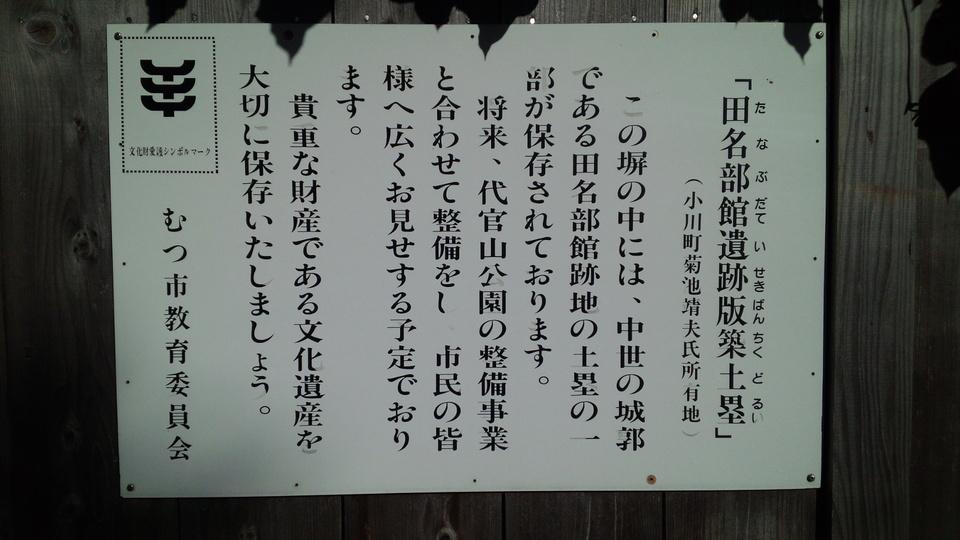 「田名部館遺跡版築土塁」
たなぶだていせきばんちくどるい
(小川町菊池靖夫氏所有地)
この塀の中には、中世の城郭
である田名部館跡地の土塁の一
部が保存されております。
将来、代官山公園の整備事業
と合わせて整備をし、市民の皆
様へ広くお見せする予定でおり
ます。
貴重な財産である文化遺産を
大切に保存いたしましょう。
むつ市教育委員会
文化財愛護シンボルマーク